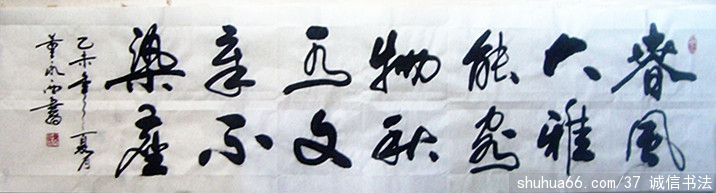 春風
大雅
能容
物秋
水文
章不
染塵
乙未年之夏月
董 書
shuhua66.com/37 诚信书法